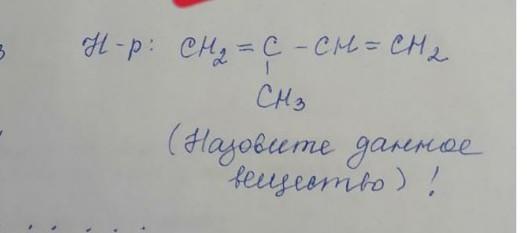 Н-р: CH₂ = C – CH = CH₂
CH₃
(Назовите данное
вещество) !